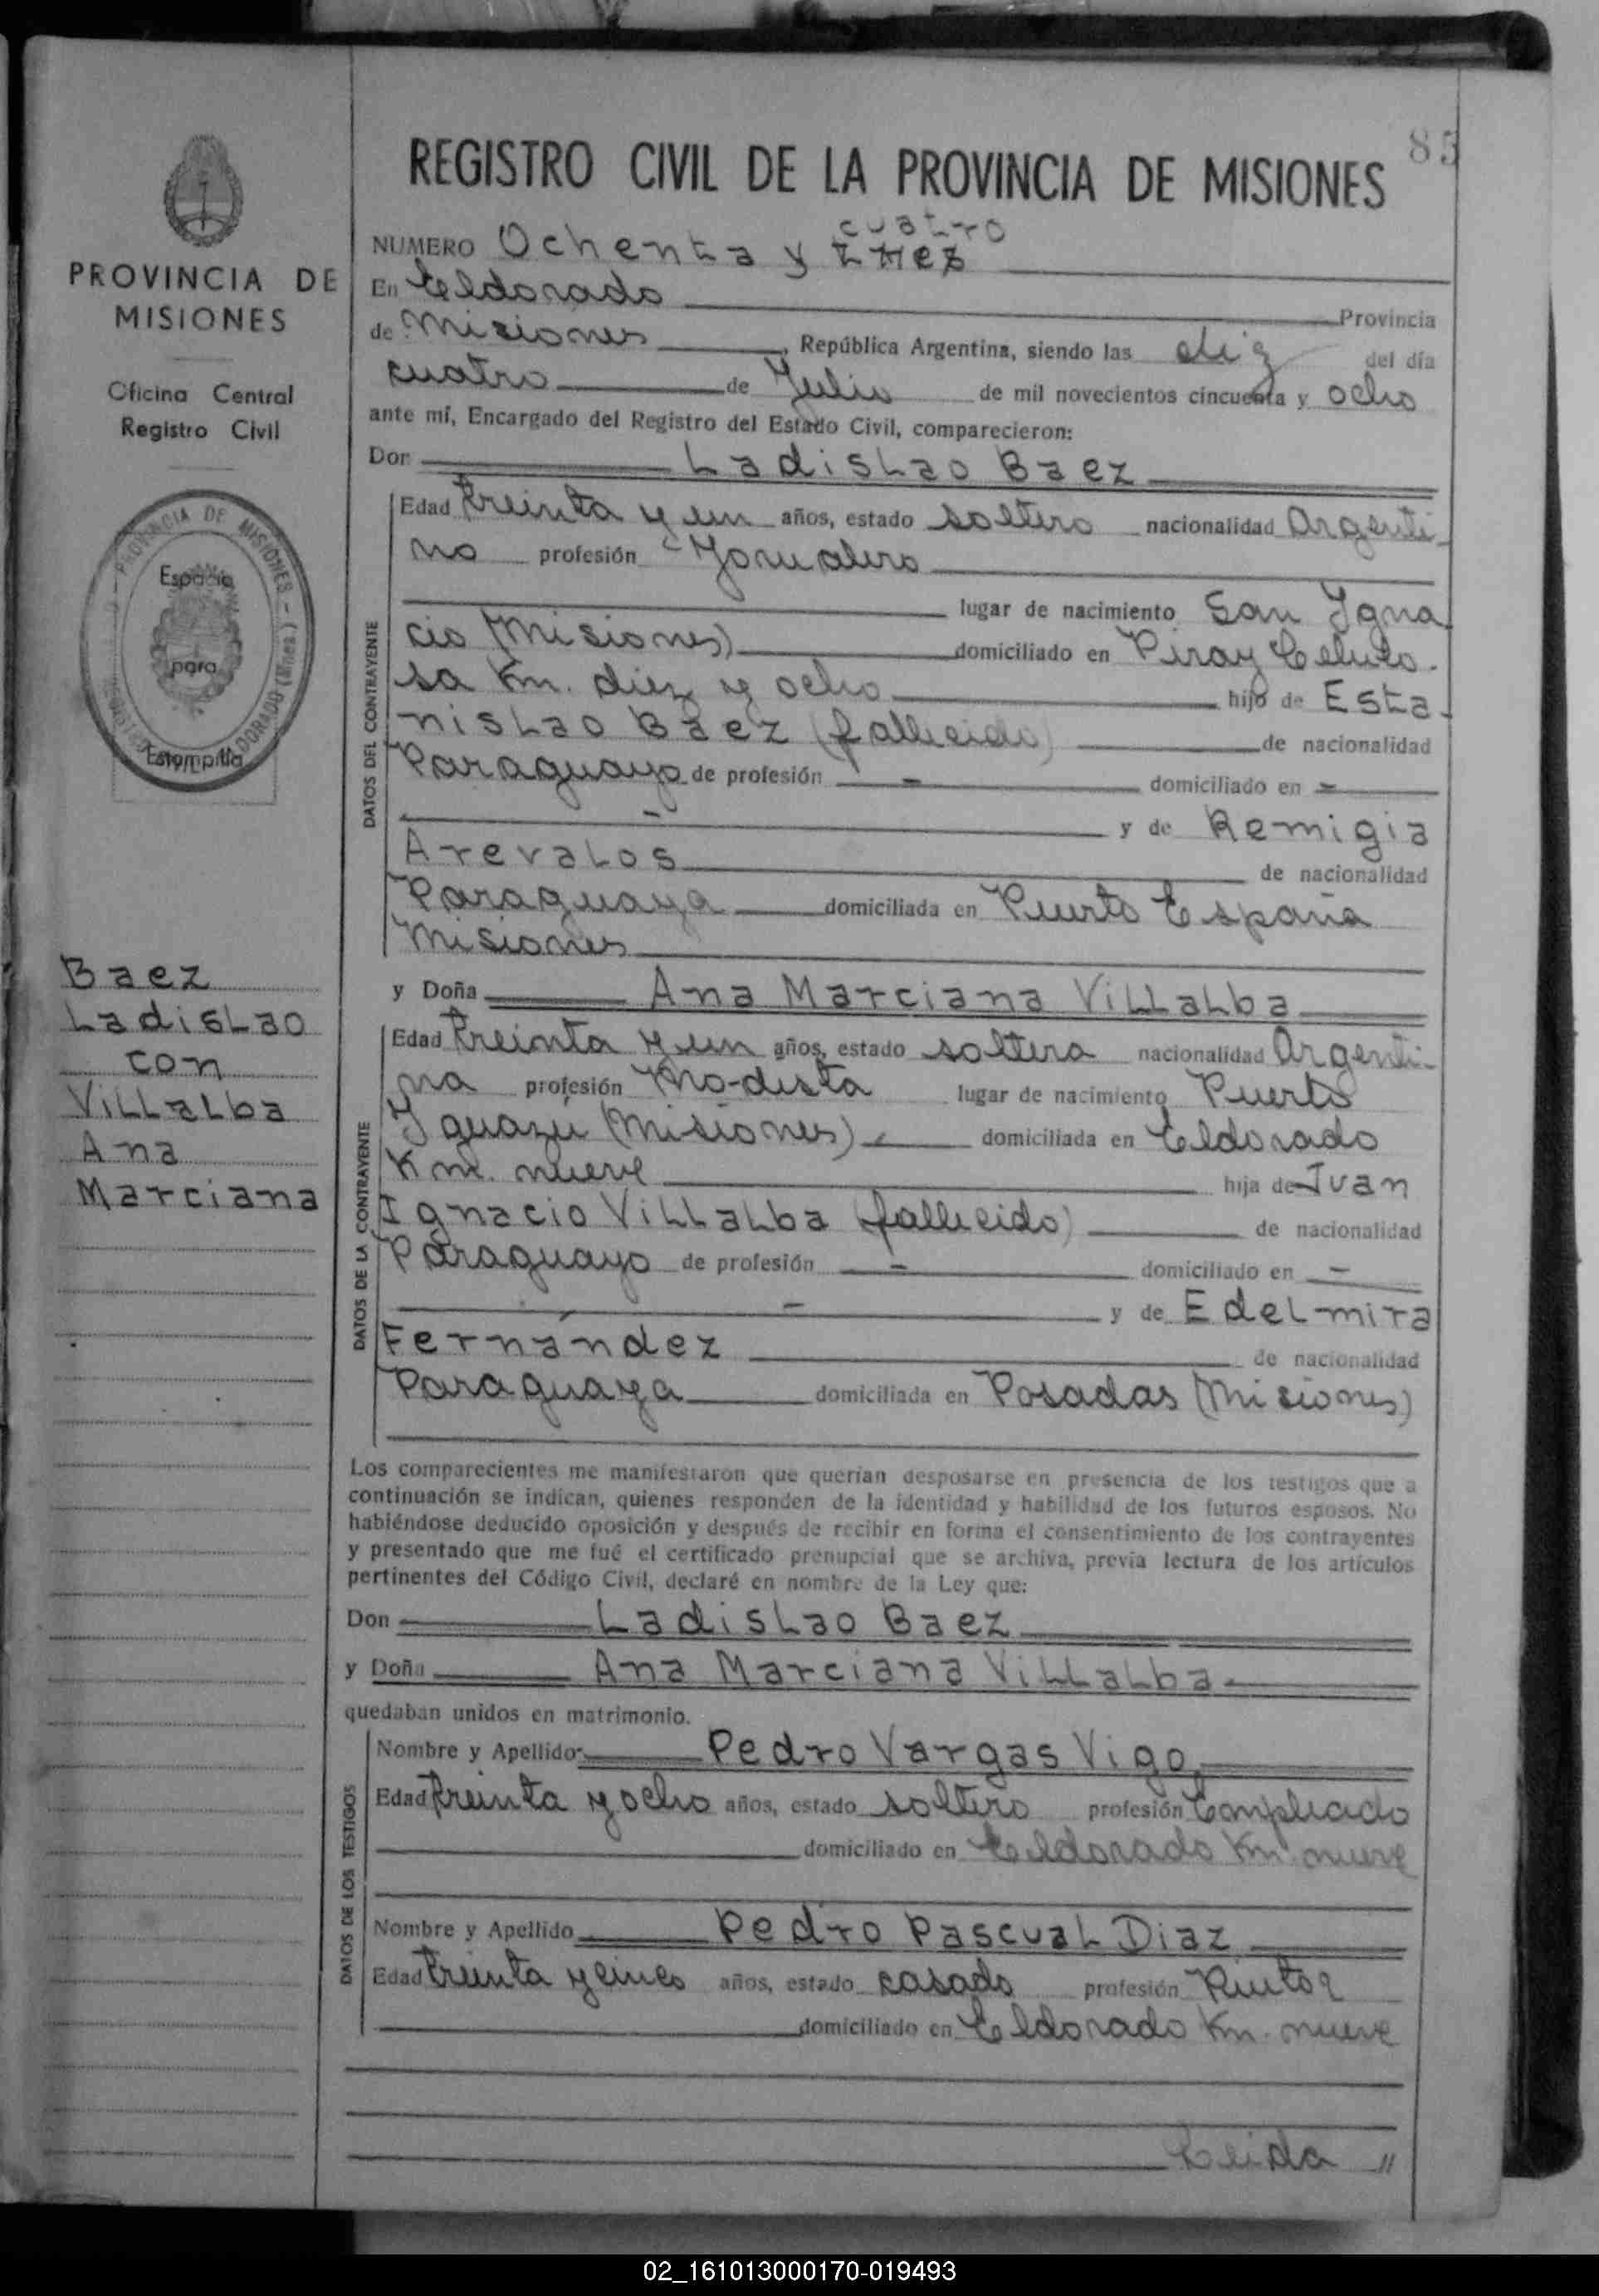 85
REGISTRO CIVIL DE LA PROVINCIA DE MISIONES
PROVINCIA DE
MISIONES
Oficina Central
Registro Civil
PROVINCIA DE MISIONES
ELDORADO (Mnes.)
Espacio
para
Estampilla
Baez
Ladislao
con
Villalba
Ana
Marciana
cuatro
NUMERO Ochenta y tres
En Eldorado Provincia
de Misiones, República Argentina, siendo las diez del día
cuatro de Julio de mil novecientos cincuenta y ocho
ante mí, Encargado del Registro del Estado Civil, comparecieron:
Don Ladislao Baez
DATOS DEL CONTRAYENTE
Edad treinta y un años, estado soltero nacionalidad Argenti-
no profesión Jornalero
lugar de nacimiento San Igna
cio (Misiones) domiciliado en Piray Celulo-
sa Km. diez y ocho hijo de Esta-
nislao Baez (fallecido) de nacionalidad
Paraguayo de profesión - domiciliado en -
- y de Remigia
Arevalos de nacionalidad
Paraguaya domiciliada en Puerto España
Misiones
y Doña Ana Marciana Villalba
DATOS DE LA CONTRAYENTE
Edad treinta y un años, estado soltera nacionalidad Argenti-
na profesión Modista lugar de nacimiento Puerto
Iguazú (Misiones) domiciliada en Eldorado
Km. nueve hija de Juan
Ignacio Villalba (fallecido) de nacionalidad
Paraguayo de profesión - domiciliado en -
- y de Edelmira
Fernández de nacionalidad
Paraguaya domiciliada en Posadas (Misiones)
Los comparecientes me manifestaron que querían desposarse en presencia de los testigos que a
continuación se indican, quienes responden de la identidad y habilidad de los futuros esposos. No
habiéndose deducido oposición y después de recibir en forma el consentimiento de los contrayentes
y presentado que me fué el certificado prenupcial que se archiva, previa lectura de los artículos
pertinentes del Código Civil, declaré en nombre de la Ley que:
Don Ladislao Baez
y Doña Ana Marciana Villalba
quedaban unidos en matrimonio.
DATOS DE LOS TESTIGOS
Nombre y Apellido Pedro Vargas Vigo
Edad treinta y ocho años, estado soltero profesión Empleado
domiciliado en Eldorado Km. nueve
Nombre y Apellido Pedro Pascual Diaz
Edad treinta y cinco años, estado casado profesión Pintor
domiciliado en Eldorado Km. nueve
Leida //
02_161013000170-019493